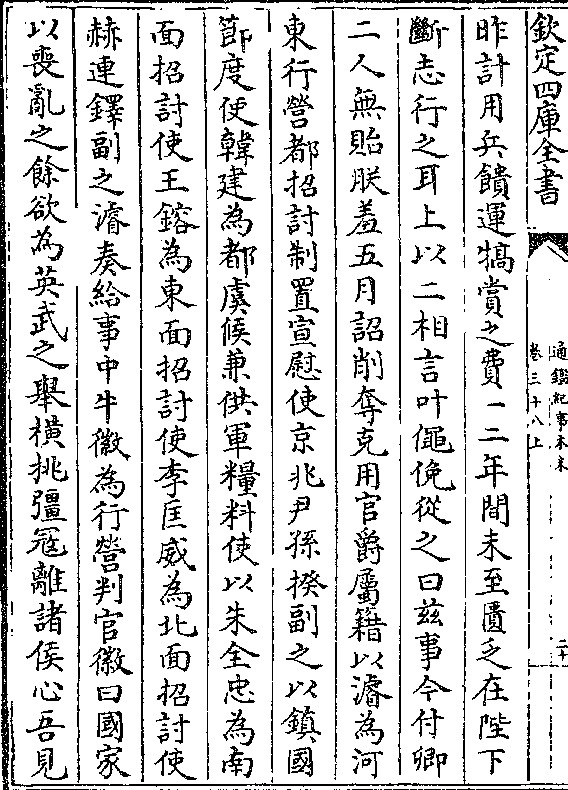 欽定四庫全書
通鑑紀事本末
卷三十八上
二十
昨計用兵饋運犒賞之費一二年間未至匱乏在陛下
斷志行之耳上以二相言叶僶俛從之曰兹事今付卿
二人無貽朕羞五月詔削奪克用官爵屬籍以濬為河
東行營都招討制置宣慰使京兆尹孫揆副之以鎮國
節度使韓建為都虞候兼供軍糧料使以朱全忠為南
面招討使王鎔為東面招討使李匡威為北面招討使
赫連鐸副之濬奏給事中牛徽為行營判官徽曰國家
以喪亂之餘欲為英武之舉横挑彊寇離諸侯心吾見